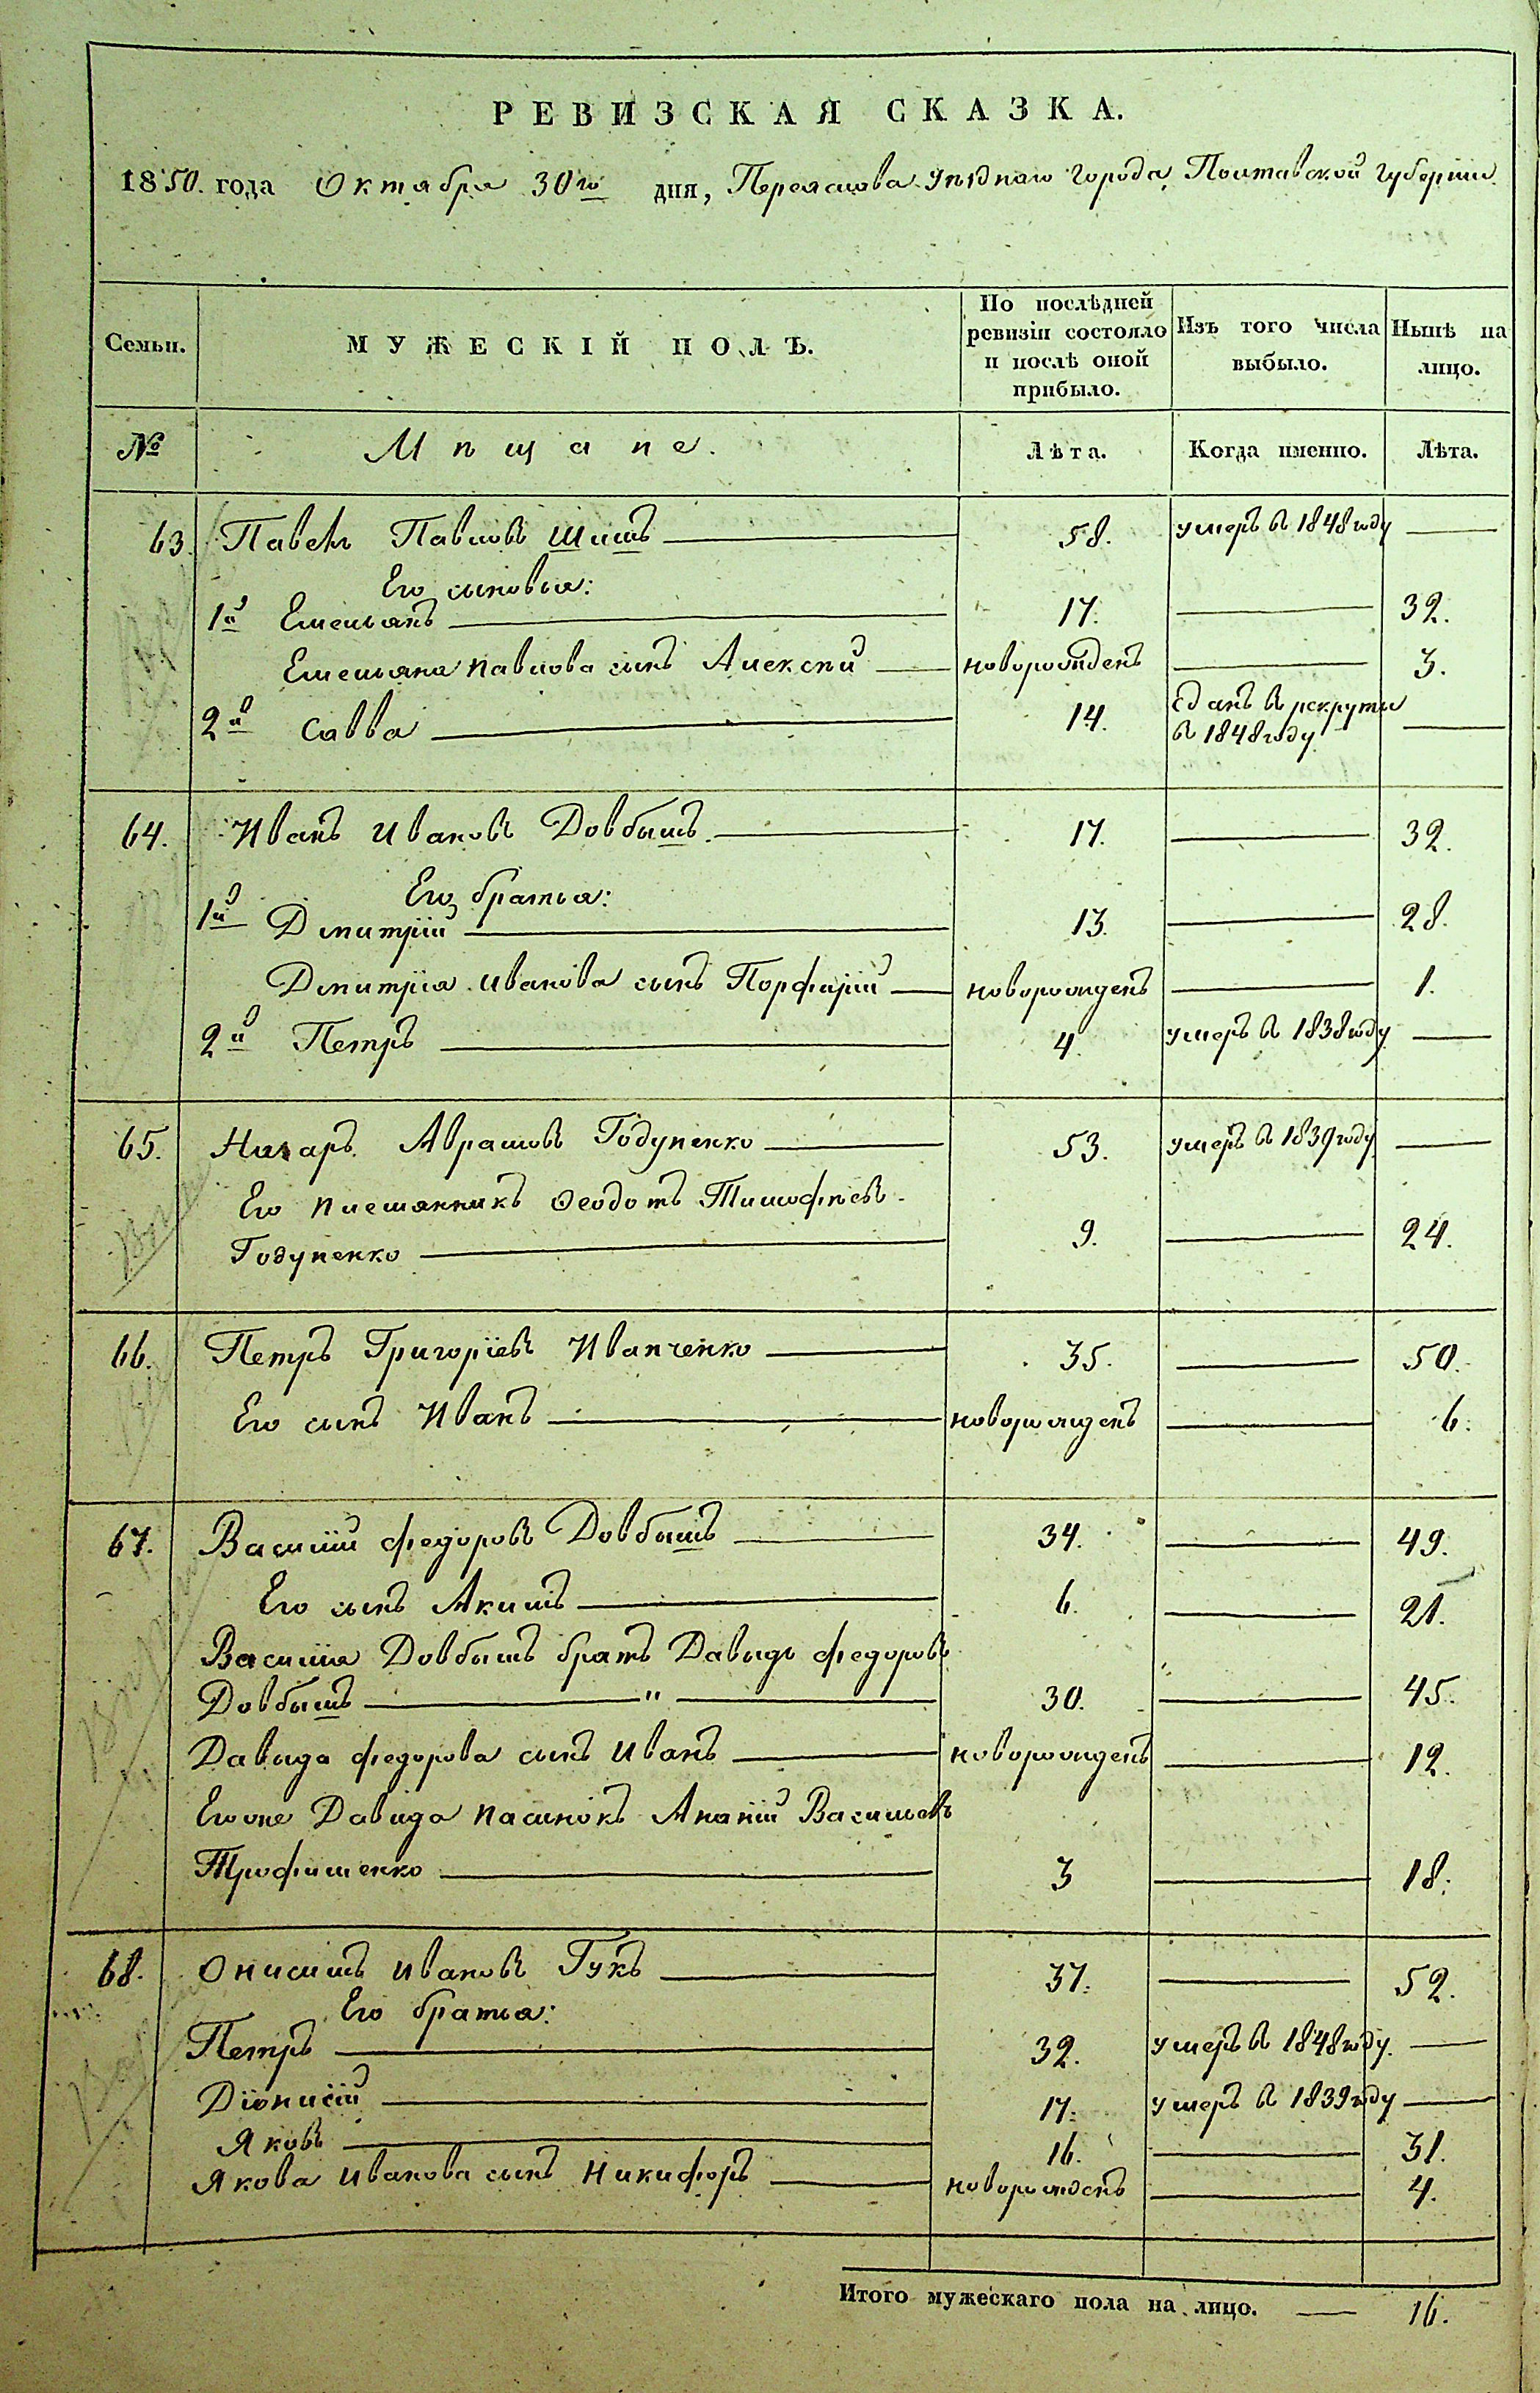 РЕВИЗСКАЯ СКАЗКА.
1850. года Октября 30го дня, Переяслова Уѣзднаго Города, Полтавской Губерніи.
Семьи.
МУЖЕСКІЙ ПОЛЪ.
По послѣдней ревизіи состояло и послѣ оной прибыло.
Изъ того числа выбыло.
Нынѣ на лицо.
№
Мѣщане.
Лѣта.
Когда именно.
Лѣта.
63. Павелъ Павловъ Шишъ — 58. умеръ в 1848 году —
Его сыновья:
1й Емельянъ — 17. — 32.
Емельяна Павлова сынъ Алексѣй — новорожденъ — 3.
2й Савва — 14. Сданъ в рекруты в 1848 году —
64. Иванъ Ивановъ Довбышъ. — 17. — 32.
Его братья:
1й Дмитрій — 13. — 28.
Дмитрія Иванова сынъ Порфирій — новорожденъ — 1.
2й Петръ — 4. умеръ в 1838 году —
65. Аврамовъ Годуненко — 53. умеръ в 1839 году —
Его племянникъ Феодотъ Тимофѣевъ
Годуненко — 9. — 24.
66. Петръ Григоріевъ Иванченко — 35. — 50.
Его сынъ Иванъ — новорожденъ — 6.
67. Василій Федоровъ Довбышъ — 34. — 49.
Его сынъ Акимъ — 6. — 21.
Василія Довбышъ братъ Давыдъ Федоровъ
Довбышъ — " — 30. — 45.
Давыда Федорова сынъ Иванъ — новорожденъ — 12.
Егоже Давида пасынокъ Ананій Васильевъ
Трофименко — 3 — 18.
68. Онисимъ Ивановъ Гукъ — 37. — 52.
Его братья:
Петръ — 32. умеръ в 1848 году. —
Діонисій — 17. умеръ в 1839 году —
Яковъ — 16. — 31.
Якова Иванова сынъ Никифоръ — новорожденъ — 4.
Итого мужескаго пола на лицо. — 16.